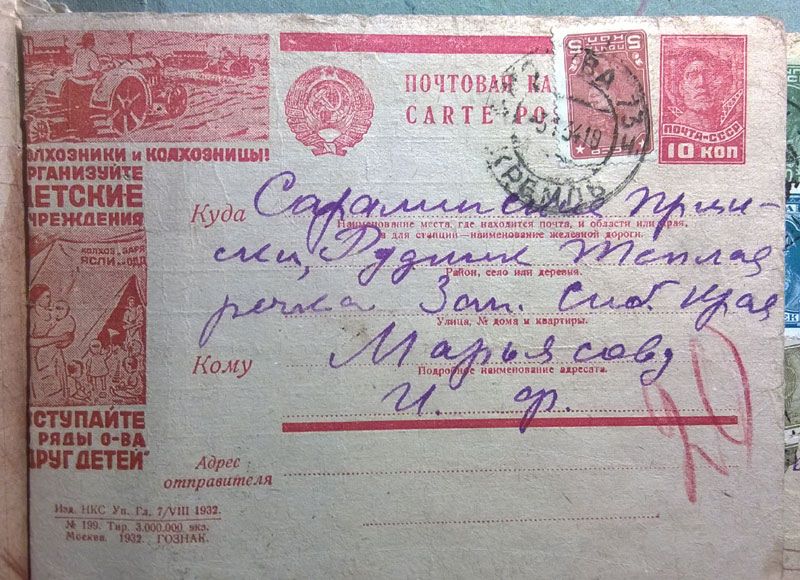 КОЛХОЗНИКИ и КОЛХОЗНИЦЫ!
ОРГАНИЗУЙТЕ
ДЕТСКИЕ
УЧРЕЖДЕНИЯ
КОЛХОЗ ЗАРЯ
ЯСЛИ
ВСТУПАЙТЕ
РЯДЫ О-ВА
ДРУГ ДЕТЕЙ"
ПОЧТОВАЯ КА
CARTE PO
5 КОП 5
МОСКВА 73
КРЕМЛЬ
ПОЧТА-СССР
10 КОП
Куда Саралинские прии-
Наименование места, где находится почта, и области или края,
а для станций—наименование железной дороги.
ски, Рудник Теплая
Район, село или деревня.
речка Зап. Сиб Края
Улица, № дома и квартиры.
Кому Марьясову
Подробное наименование адресата.
И. Ф.
20
Адрес
отправителя
Изд. НКС Уп. Гл. 7/VIII 1932.
№ 199. Тир. 3.000.000 экз.
Москва. 1932. ГОЗНАК.